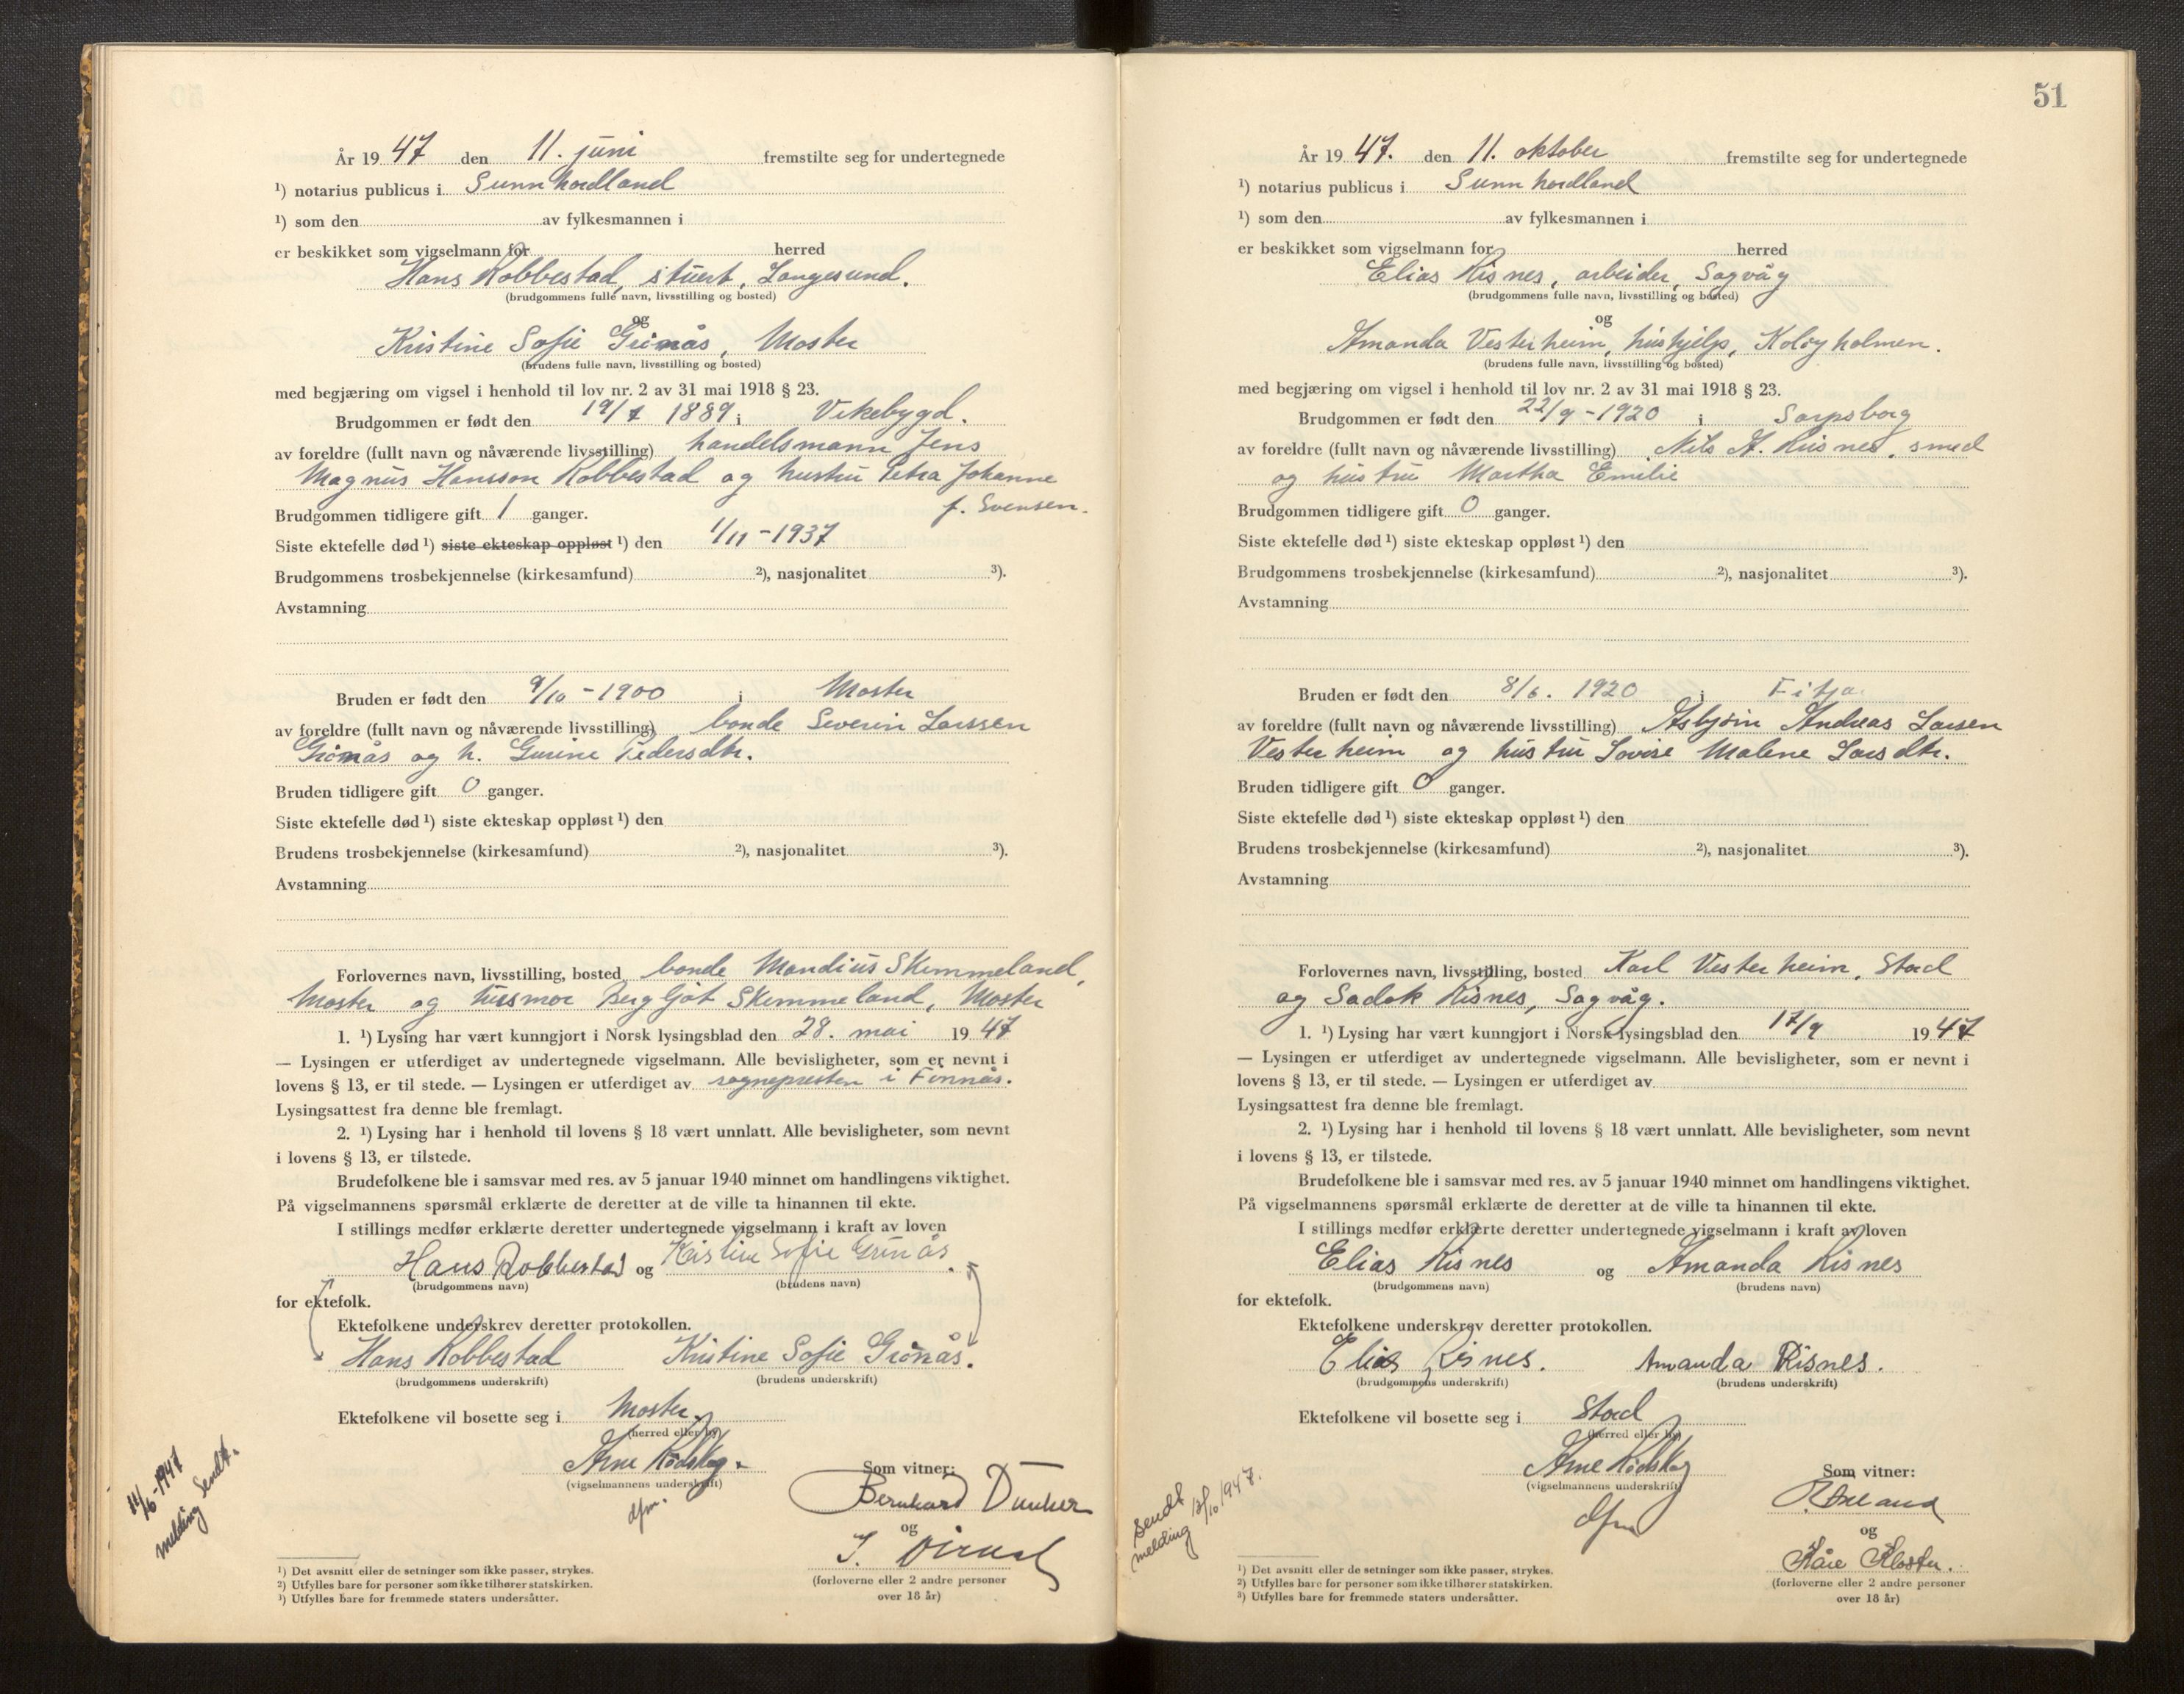 År 19 47 den 11. juni fremstilte seg for undertegnede
¹) notarius publicus i Sunnhordland
¹) som den av fylkesmannen i
er beskikket som vigselmann for herred
Hans Robbestad, stuert, Langesund.
(brudgommens fulle navn, livsstilling og bosted)
og
Kristine Sofie Grönås, Moster
(brudens fulle navn, livsstilling og bosted)
med begjæring om vigsel i henhold til lov nr. 2 av 31 mai 1918 § 23.
Brudgommen er født den 19/7 1889 i Vikebygd.
av foreldre (fullt navn og nåværende livsstilling) handelsmann Jens
Magnus Hansson Robbestad og hustru Petra Johanne
f. Svensen.
Brudgommen tidligere gift 1 ganger.
Siste ektefelle død ¹) siste ekteskap oppløst ¹) den 1/11 - 1937
Brudgommens trosbekjennelse (kirkesamfund) ²), nasjonalitet ³).
Avstamning
Bruden er født den 9/10 - 1900 i Moster
av foreldre (fullt navn og nåværende livsstilling) bonde Severin Larssen
Grönås og h. Gurine Pedersdtr.
Bruden tidligere gift 0 ganger.
Siste ektefelle død ¹) siste ekteskap oppløst ¹) den
Brudens trosbekjennelse (kirkesamfund) ²), nasjonalitet ³).
Avstamning
Forlovernes navn, livsstilling, bosted bonde Mandius Skimmeland,
Moster og husmor Bergljot Skimmeland, Moster
1. ¹) Lysing har vært kunngjort i Norsk lysingsblad den 28. mai 19 47
— Lysingen er utferdiget av undertegnede vigselmann. Alle bevisligheter, som er nevnt i
lovens § 13, er til stede. — Lysingen er utferdiget av sognepresten i Finnås.
Lysingsattest fra denne ble fremlagt.
2. ¹) Lysing har i henhold til lovens § 18 vært unnlatt. Alle bevisligheter, som nevnt
i lovens § 13, er tilstede.
Brudefolkene ble i samsvar med res. av 5 januar 1940 minnet om handlingens viktighet.
På vigselmannens spørsmål erklærte de deretter at de ville ta hinannen til ekte.
I stillings medfør erklærte deretter undertegnede vigselmann i kraft av loven
Hans Robbestad og Kristine Sofie Grönås.
(brudgommens navn) (brudens navn)
for ektefolk.
Ektefolkene underskrev deretter protokollen.
Hans Robbestad Kristine Sofie Grönås.
(brudgommens underskrift) (brudens underskrift)
Ektefolkene vil bosette seg i Moster
(herred eller by)
Arne Rödskog.
(vigselmannens underskrift)
dfm.
Som vitner:
Bernhard Dunker
og
(forloverne eller 2 andre personer
over 18 år)
11/6-1947
melding sendt.
¹) Det avsnitt eller de setninger som ikke passer, strykes.
²) Utfylles bare for personer som ikke tilhører statskirken.
³) Utfylles bare for fremmede staters undersåtter.
51
År 19 47. den 11. oktober fremstilte seg for undertegnede
¹) notarius publicus i Sunnhordland
¹) som den av fylkesmannen i
er beskikket som vigselmann for herred
Elias Risnes, arbeider, Sagvåg
(brudgommens fulle navn, livsstilling og bosted)
og
Amanda Vesterheim, hushjelp, Koløyholmen.
(brudens fulle navn, livsstilling og bosted)
med begjæring om vigsel i henhold til lov nr. 2 av 31 mai 1918 § 23.
Brudgommen er født den 22/9 - 1920 i Sarpsborg
av foreldre (fullt navn og nåværende livsstilling) Nils A. Risnes, smed
og hustru Martha Emilie
Brudgommen tidligere gift 0 ganger.
Siste ektefelle død ¹) siste ekteskap oppløst ¹) den
Brudgommens trosbekjennelse (kirkesamfund) ²), nasjonalitet ³).
Avstamning
Bruden er født den 8/6. 1920 i Fitja
av foreldre (fullt navn og nåværende livsstilling) Asbjörn Andreas Larsen
Vesterheim og hustru Lovise Malene Larsdtr.
Bruden tidligere gift 0 ganger.
Siste ektefelle død ¹) siste ekteskap oppløst ¹) den
Brudens trosbekjennelse (kirkesamfund) ²), nasjonalitet ³).
Avstamning
Forlovernes navn, livsstilling, bosted Karl Vesterheim, Stord
og Sadok Risnes, Sagvåg.
1. ¹) Lysing har vært kunngjort i Norsk lysingsblad den 17/9 19 47
— Lysingen er utferdiget av undertegnede vigselmann. Alle bevisligheter, som er nevnt i
lovens § 13, er til stede. — Lysingen er utferdiget av
Lysingsattest fra denne ble fremlagt.
2. ¹) Lysing har i henhold til lovens § 18 vært unnlatt. Alle bevisligheter, som nevnt
i lovens § 13, er tilstede.
Brudefolkene ble i samsvar med res. av 5 januar 1940 minnet om handlingens viktighet.
På vigselmannens spørsmål erklærte de deretter at de ville ta hinannen til ekte.
I stillings medfør erklærte deretter undertegnede vigselmann i kraft av loven
Elias Risnes og Amanda Risnes
(brudgommens navn) (brudens navn)
for ektefolk.
Ektefolkene underskrev deretter protokollen.
Elias Risnes. Amanda Risnes.
(brudgommens underskrift) (brudens underskrift)
Ektefolkene vil bosette seg i Stord
(herred eller by)
Arne Rödskog
(vigselmannens underskrift)
dfm
Som vitner:
og
Kåre Kloster.
(forloverne eller 2 andre personer
over 18 år)
sendt
melding 13/10 1947.
¹) Det avsnitt eller de setninger som ikke passer, strykes.
²) Utfylles bare for personer som ikke tilhører statskirken.
³) Utfylles bare for fremmede staters undersåtter.